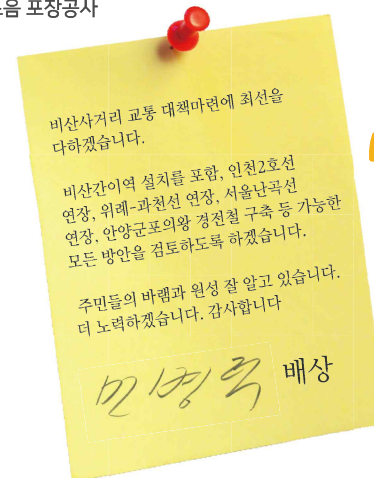 음 포장공사
비산사거리 교통 대책마련에 최선을
다하겠습니다.
비산간이역 설치를 포함, 인천2호선
연장, 위례-과천선 연장, 서울난곡선
연장, 안양군포의왕 경전철 구축 등 가능한
모든 방안을 검토하도록 하겠습니다.
주민들의 바램과 원성 잘 알고 있습니다.
더 노력하겠습니다. 감사합니다
민병덕 배상